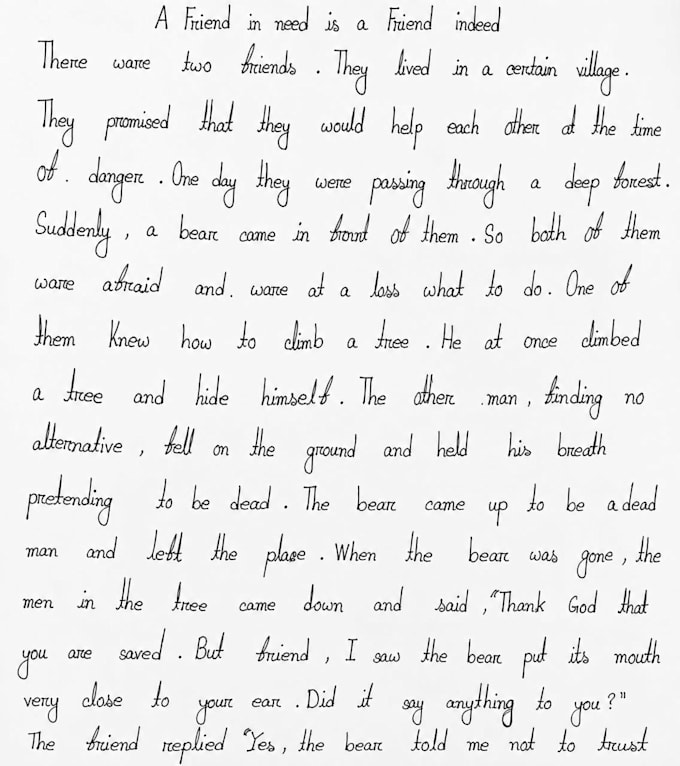 A Friend in need is a Friend indeed
There ware two friends . They lived in a certain village .
They promised that they would help each other at the time
of . danger . One day they were passing through a deep forest .
Suddenly , a bear came in fround of them . So both of them
ware afraid and . ware at a loss what to do . One of
them Knew how to climb a tree . He at once climbed
a tree and hide himself . The other .man , finding no
alternative , fell on the ground and held his breath
pretending to be dead . The bear came up to be a dead
man and left the place . When the bear was gone , the
men in the tree came down and said ,"Thank God that
you are saved . But friend , I saw the bear put its mouth
very close to your ear . Did it say anything to you ?"
The friend replied "Yes , the bear told me not to trust